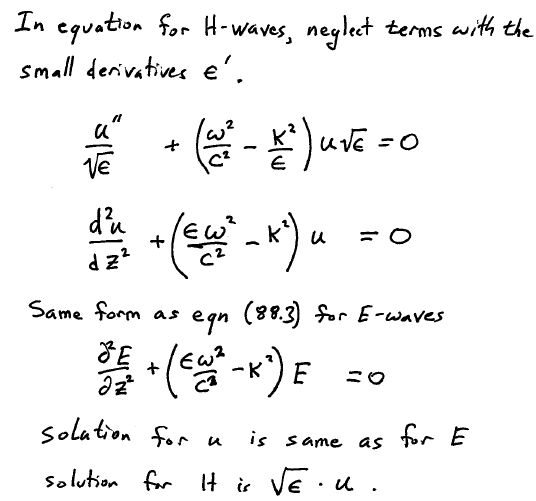 In equation for H-waves, neglect terms with the
small derivatives ε′.
u″/√ε + (ω²/c² − κ²/ε) u√ε = 0
d²u/dz² + (εω²/c² − κ²) u = 0
Same form as eqn (88.3) for E-waves
∂²E/∂z² + (εω²/c² − κ²) E = 0
solution for u is same as for E
solution for H is √ε · u .